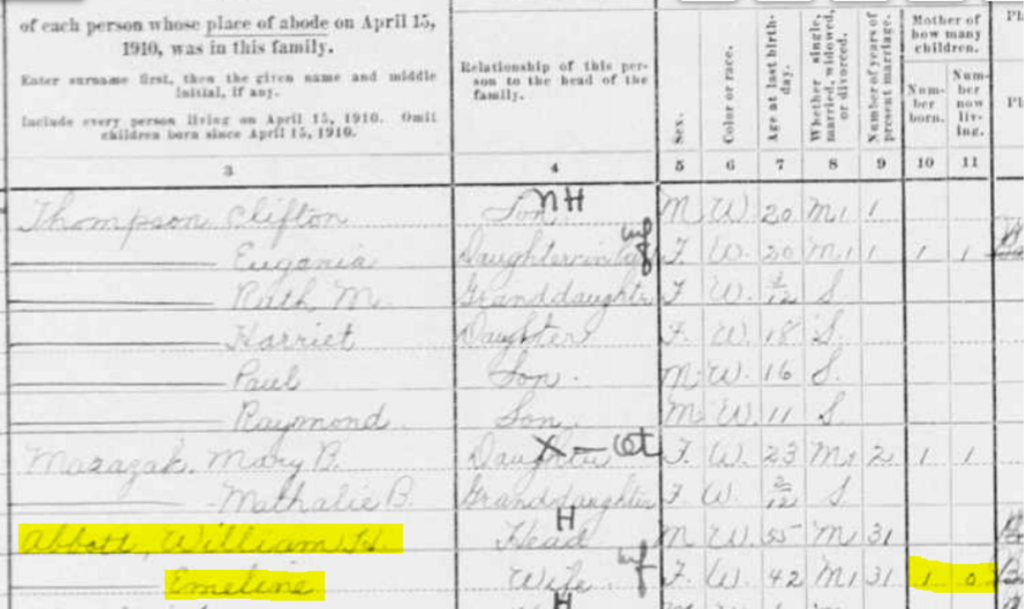 of each person whose place of abode on April 15,
1910, was in this family.
Enter surname first, then the given name and middle
initial, if any.
Include every person living on April 15, 1910. Omit
children born since April 15, 1910.
Relationship of this per-
son to the head of the
family.
Sex.
Color or race.
Age at last birth-
day.
Whether single,
married, widowed,
or divorced.
Number of years of
present marriage.
Mother of
how many
children.
Num-
ber
born.
Num-
ber
now
liv-
ing.
3 4 5 6 7 8 9 10 11
NH
Thompson Clifton Son M W. 20 M1 1
wf
Eugenia F. W. 20 M1 1 1 1
Ruth M. Granddaughter F W. S.
Harriet Daughter F. W. 18 S.
Paul Son. M W. 16 S.
Raymond Son M W. 11 S.
X - Ot
Mazazak, Mary B. Daughter F. W. 23 M1 2 1 1
Nathalie B. Granddaughter F W. S.
H
Abbott, William H. Head M W. 55 M1 31
wf
Emeline Wife F. W. 42 M1 31 1 0
H